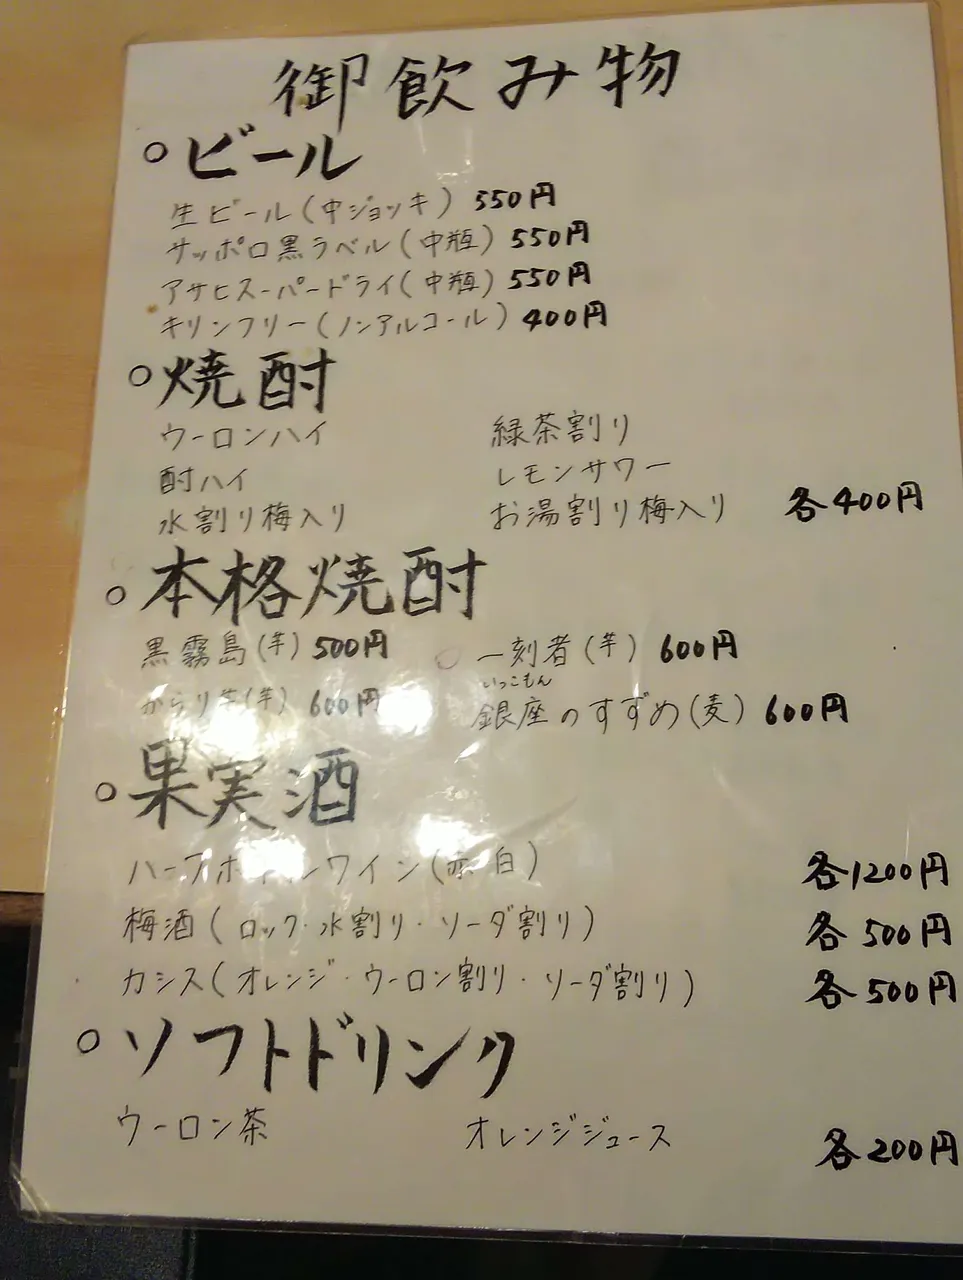 御飲み物
○ビール
生ビール(中ジョッキ) 550円
サッポロ黒ラベル(中瓶) 550円
アサヒスーパードライ(中瓶) 550円
キリンフリー(ノンアルコール) 400円
○焼酎
ウーロンハイ 緑茶割り
酎ハイ レモンサワー
水割り梅入り お湯割り梅入り 各400円
○本格焼酎
黒霧島(芋) 500円 一刻者(芋) 600円
いっこもん
からり芋(芋) 600円 銀座のすずめ(麦) 600円
○果実酒
ハーフボトルワイン(赤 白) 各1200円
梅酒(ロック・水割り・ソーダ割り) 各500円
カシス(オレンジ・ウーロン割り・ソーダ割り) 各500円
○ソフトドリンク
ウーロン茶 オレンジジュース 各200円